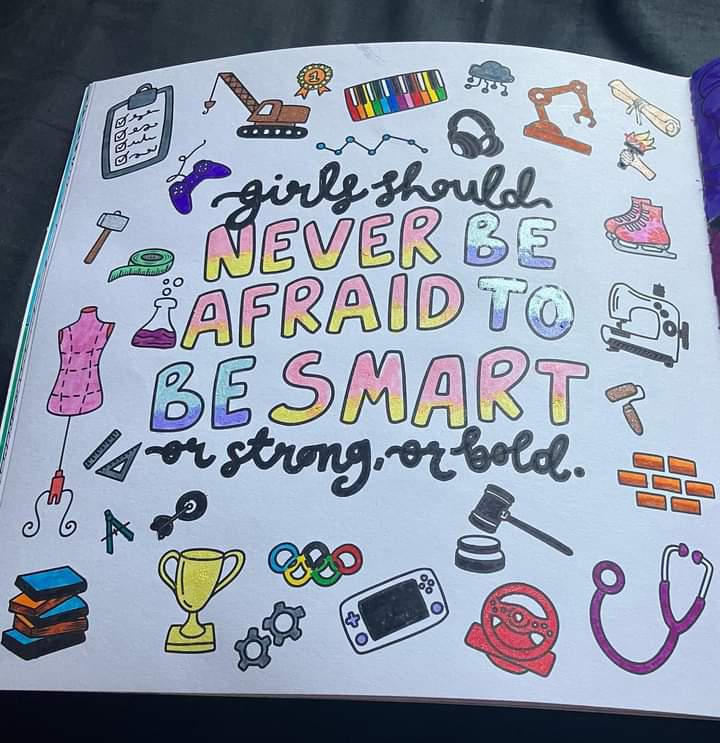 1
girls should
NEVER BE
AFRAID TO
BE SMART
or strong, or bold.